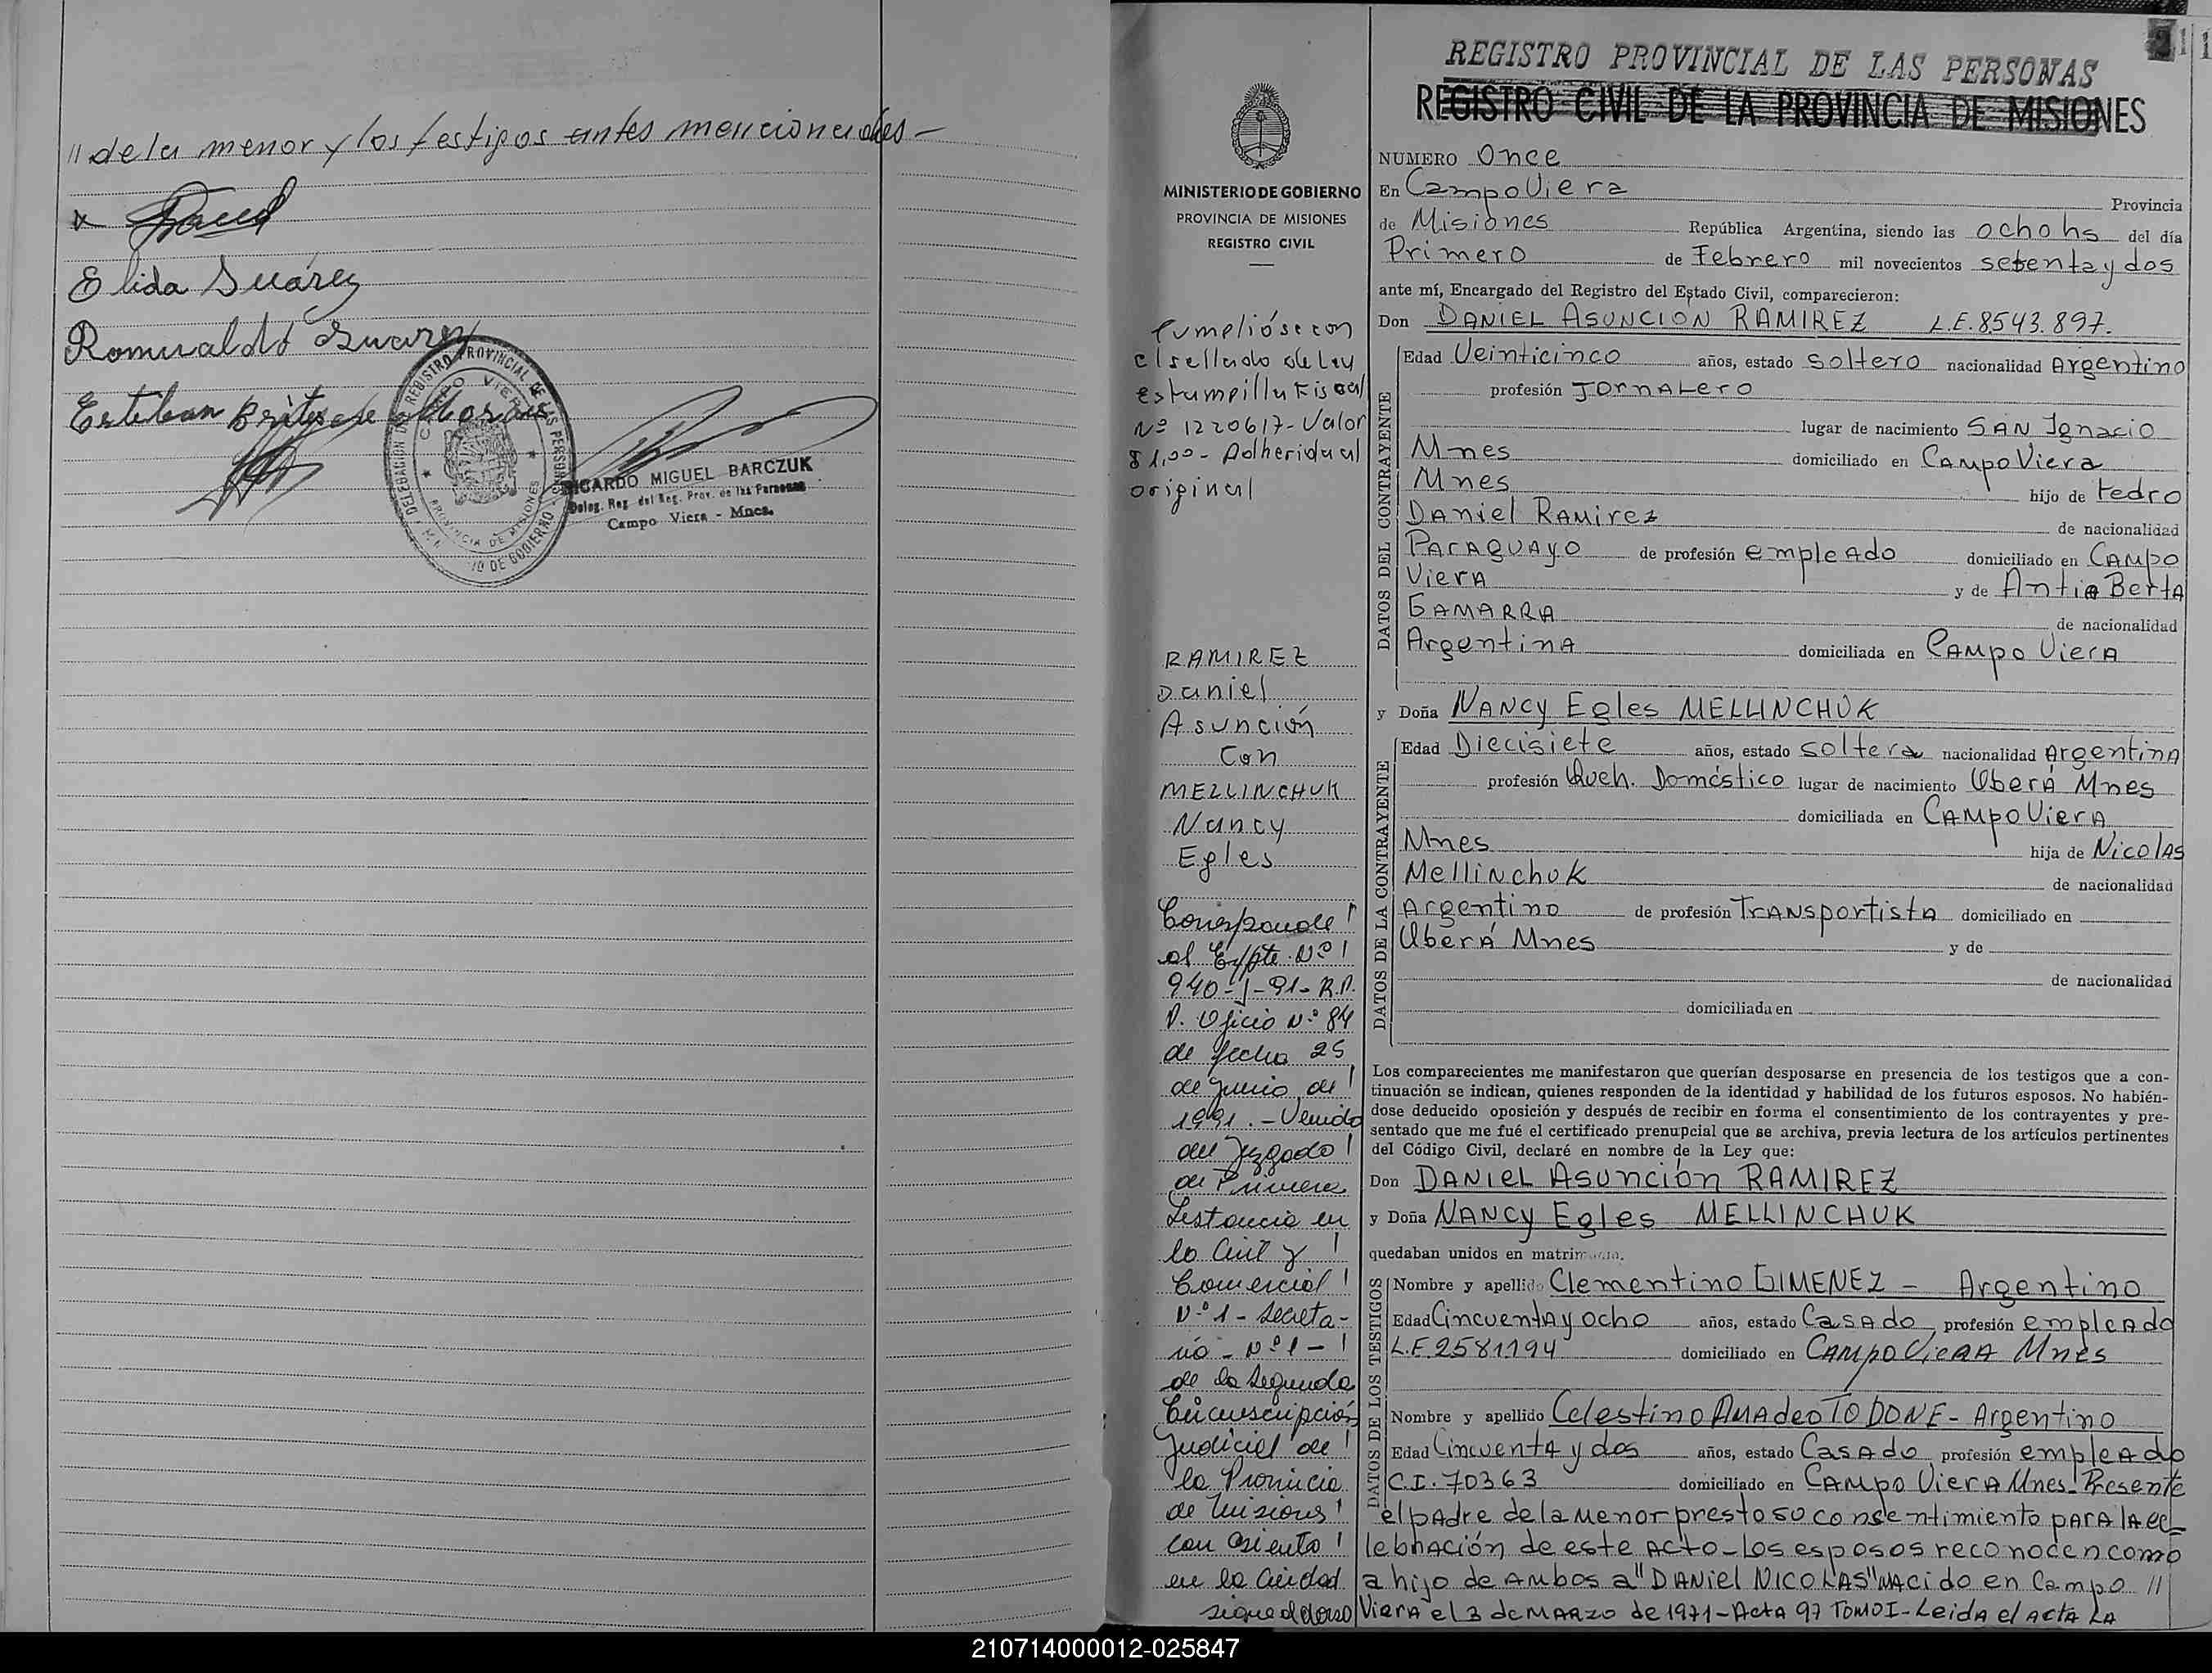 // de la menor y los testigos antes mencionados -
x
Elida Suárez
Romualdo Suarez
Esteban Britez de
DELEGACION REGISTRO PROVINCIAL DE LAS PERSONAS
CAMPO VIERA
PROVINCIA DE MISIONES
RICARDO MIGUEL BARCZUK
Deleg. Reg. del Reg. Prov. de las Personas
Campo Viera - Mnes.
MINISTERIO DE GOBIERNO
PROVINCIA DE MISIONES
REGISTRO CIVIL
Cumplióse con
el sellado de ley
estampilla fiscal
Nº 1220617 - Valor
$ 1,00 - Adherida al
original
RAMIREZ
Daniel
Asunción
Con
MELLINCHUK
Nancy
Egles
Corresponde!
al Expte. Nº!
940-J-91- R.P.
P. Oficio Nº 84
de fecha 25
de junio de!
1991. - Venido
del Juzgado!
de Primera
Instancia en
lo Civil y!
Comercial!
Nº 1 - Secreta-
ría - Nº 1 - !
de la Segunda
Circunscripción
Judicial de!
la Provincia
de Misiones!
con asiento!
en la Ciudad
sigue al dorso
REGISTRO PROVINCIAL DE LAS PERSONAS
REGISTRO CIVIL DE LA PROVINCIA DE MISIONES
NUMERO Once
En Campo Viera Provincia
de Misiones República Argentina, siendo las ocho hs del día
Primero de Febrero mil novecientos setenta y dos
ante mí, Encargado del Registro del Estado Civil, comparecieron:
Don DANIEL ASUNCION RAMIREZ L.E. 8.543.897.
DATOS DEL CONTRAYENTE
Edad Veinticinco años, estado soltero nacionalidad Argentino
profesión JORNALERO
lugar de nacimiento SAN Ignacio
Mnes domiciliado en Campo Viera
Mnes hijo de Pedro
Daniel Ramirez de nacionalidad
PARAGUAYO de profesión empleado domiciliado en CAMPO
Viera y de Antia Berta
GAMARRA de nacionalidad
Argentina domiciliada en Campo Viera
y Doña NANCY Egles MELLINCHUK
DATOS DE LA CONTRAYENTE
Edad Diecisiete años, estado soltera nacionalidad Argentina
profesión Queh. Doméstico lugar de nacimiento Oberá Mnes
domiciliada en Campo Viera
Mnes hija de Nicolas
Mellinchuk de nacionalidad
Argentino de profesión Transportista domiciliado en
Oberá Mnes y de
de nacionalidad
domiciliada en
Los comparecientes me manifestaron que querían desposarse en presencia de los testigos que a con-
tinuación se indican, quienes responden de la identidad y habilidad de los futuros esposos. No habién-
dose deducido oposición y después de recibir en forma el consentimiento de los contrayentes y pre-
sentado que me fué el certificado prenupcial que se archiva, previa lectura de los artículos pertinentes
del Código Civil, declaré en nombre de la Ley que:
Don DANIEL Asunción RAMIREZ
y Doña NANCY Egles MELLINCHUK
quedaban unidos en matrimonio.
DATOS DE LOS TESTIGOS
Nombre y apellido Clementino GIMENEZ - Argentino
Edad Cincuenta y ocho años, estado Casado profesión empleado
L.E. 2581194 domiciliado en Campo Viera Mnes
Nombre y apellido Celestino Amadeo TODONE - Argentino
Edad Cincuenta y dos años, estado Casado profesión empleado
C.I. 70363 domiciliado en Campo Viera Mnes - Presente
el padre de la menor presto su consentimiento para la ce-
lebración de este acto - Los esposos reconocen como
a hijo de ambos a "DANIEL NICOLAS" nacido en Campo //
Viera el 3 de Marzo de 1971 - Acta 97 TOMO I - Leida el acta LA
210714000012-025847